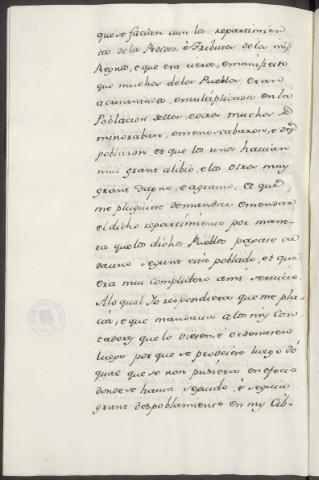 que se facian aun los repartimien
tos de los Pechos è Tributos de los mis
Regnos, e que era cierto, e manifiesto
que muchos de los Pueblos eran
acrescentados, e multiplicados en la
Poblacion dellos, e otros muchos se
minoraban, e menoscabaron, e des
poblaron, et que los unos havian
mui grant alibio, e los otros muy
grant dapno, e agravio, et que
me pluguiese demandar emendar
el dicho repartimiento por mane
ra que los dichos Pueblos pagase ca
dauno segunt está poblado, et que
era mui complidero á mi servicio
A lo qual Yo respondiera que me pla
cia, e que mandaria a los my Con
tadores que lo viesen, è ordenasen
luego por que se proveiese luego dó
qual que se non pusiera en efecto
donde se havia seguido, è seguia
grant despoblamiento en my Cib-